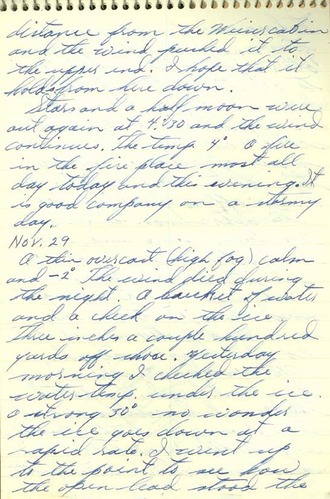 distance from the Weiss cabin
and the wind pushed it to
the upper end. I hope that it
holds from here down.
Stars and a half moon were
out again at 4:30 and the wind
continues. The temp. 4° A fire
in the fire place most all
day today and this evening. It
is good company on a stormy
day.
Nov. 29
A thin overcast (high fog) calm
and -2° The wind died during
the night. A bucket of water
and a check on the ice
three inches a couple hundred
yards off shore. Yesterday
morning I checked the
water temp. under the ice.
a strong 30° no wonder
the ice goes down at a
rapid rate. I went up
to the point to see how
the open lead stood the